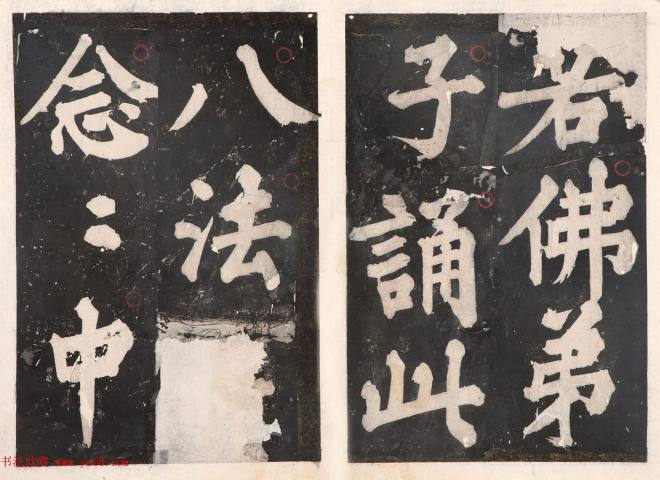 若佛弟
子誦此
八法
念〻中
书法欣赏 www.yac8.com